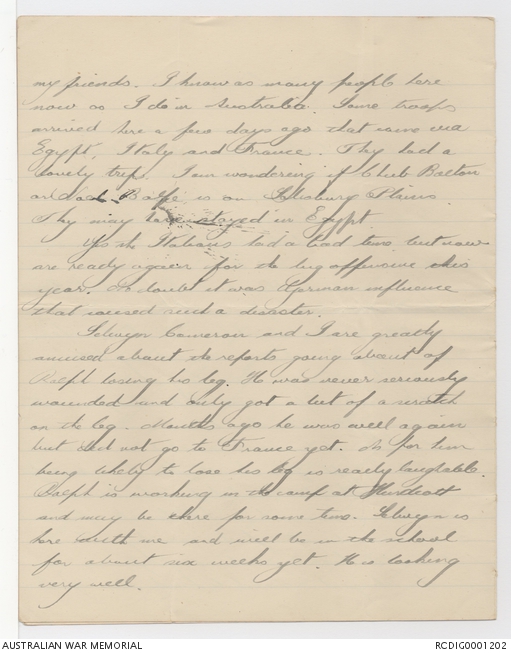 my friends. I know as many people here
now as I do in Australia. Some troops
arrived here a few days ago that came via
Egypt, Italy and France. Thy had a
lovely trip. I am wondering if Club Balton
or Jack Balfe is on Salisbury Plains
Thy may have stayed in Egypt
Yes the Italians had a bad time but now
are ready again for the big offensive this
year. No doubt it was German influence
that caused such a disaster.
Selwyn Cameron and I are greatly
amused about the reports going about of
Ralph losing his leg. He was never seriously
wounded and only got a bit of a scratch
on the leg. Months ago he was well again
but did not go to France yet. As for him
being likely to lose his leg is really laughable.
Ralph is working in the camp at Hurdcott
and may be there for some time. Selwyn is
here with me and will be in the school
for about six weeks yet. He is looking
very well.
AUSTRALIAN WAR MEMORIAL
RCDIG0001202